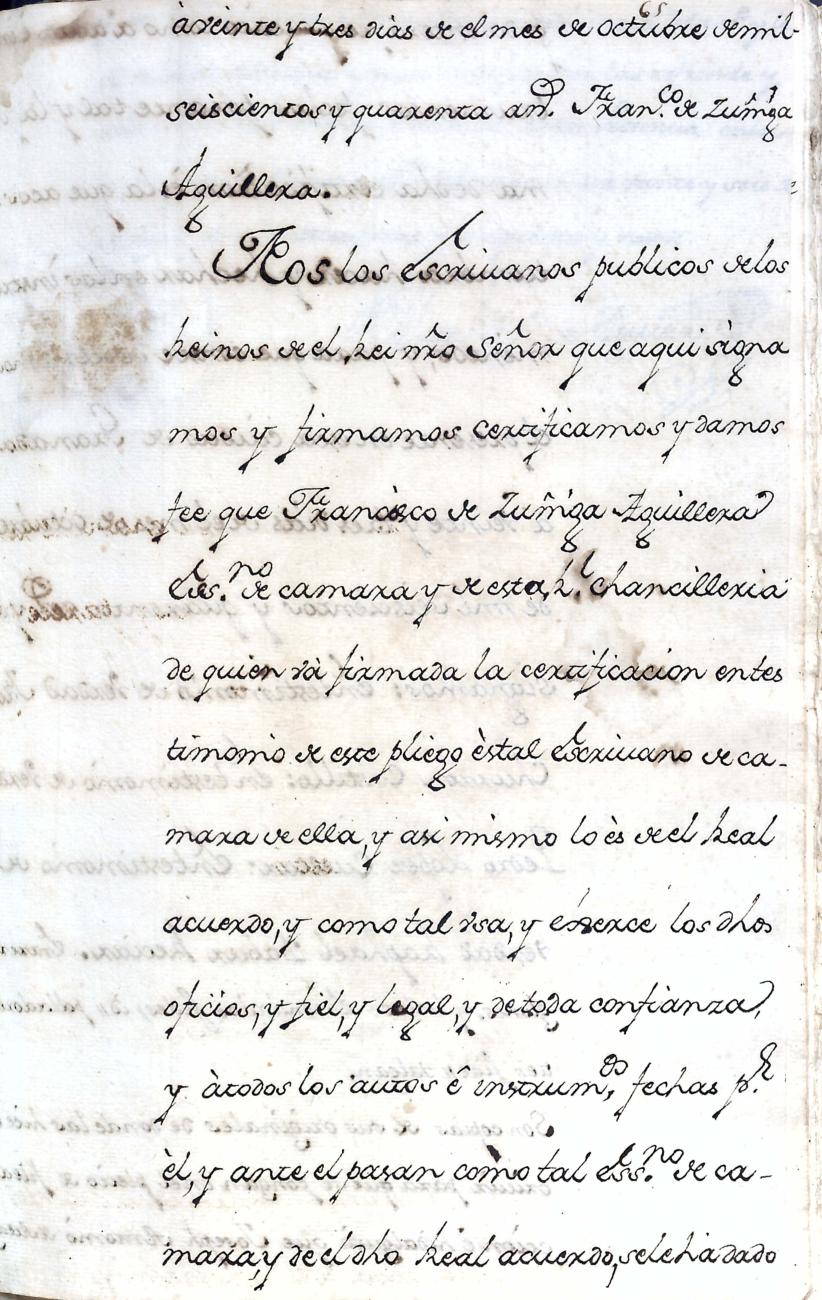 à veinte y tres dias de el mes de octubre de mil-
seiscientos y quarenta ans. Fran.co de Zuñiga
Aguillera.
Nos los escriuanos publicos de los
Reinos de el Rei nr̃o Señor que aqui signa
mos y firmamos certificamos y damos
fee que Francisco de Zuñiga Aguillera
Ess.no de camara y de esta R.l chancilleria
de quien và firmada la certificacion en tes
timonio de este pliego ès tal Escriuano de ca-
mara de ella, y asi mismo lo ès de el Real
acuerdo, y como tal vsa, y exerce los dhos
oficios, y fiel, y legal, y de toda confianza,
y à todos los autos ê instrum.tos, fechas p.r
èl, y ante el pasan como tal Ess.no de ca-
mara, y de el dho Real acuerdo, se le ha dado